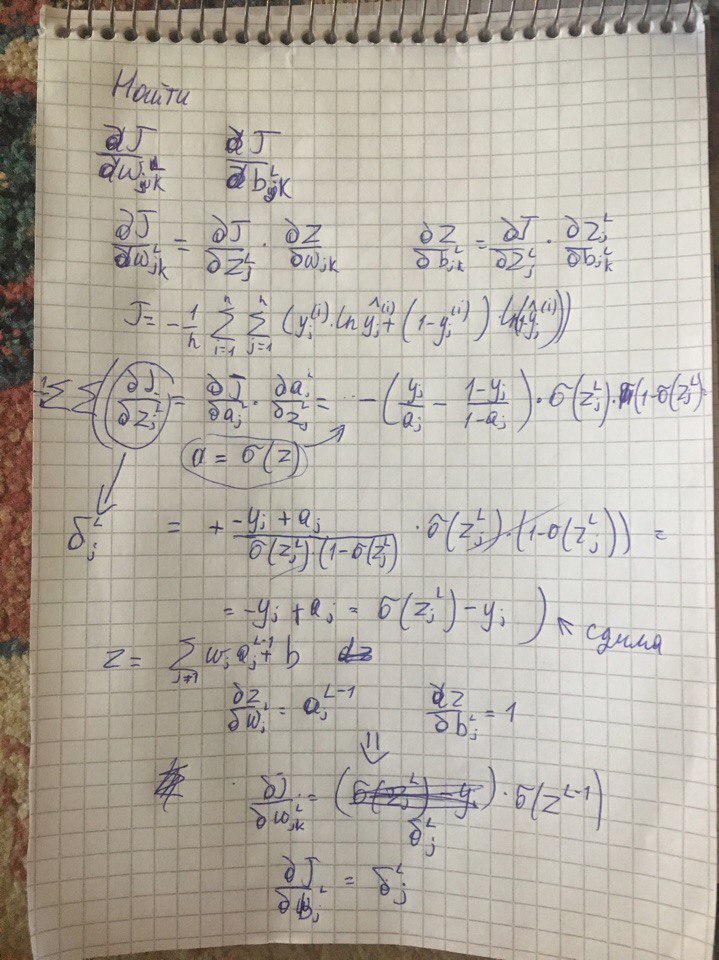 Найти
∂J/∂w_jk^L   ∂J/∂b_jk^L
∂J/∂w_jk^L = ∂J/∂z_j^L · ∂z/∂w_jk   ∂z/∂b_jk^L = ∂J/∂z_j^L · ∂z_j^L/∂b_jk^L
J = -1/n ∑_{i=1}^{n} ∑_{j=1}^{n} (y_j^(i) · ln ŷ_j^(i) + (1-y_j^(i)) · ln(1-ŷ_j^(i)))
∑ ∑ (∂J/∂z_j^L = ∂J/∂a_j^L · ∂a_j^L/∂z_j^L = -(y_j/a_j - (1-y_j)/(1-a_j)) · σ(z_j^L) · (1-σ(z_j^L) =
a = σ(z)
δ_j^L = + (-y_j + a_j)/(σ(z_j^L)·(1-σ(z_j^L)) · σ(z_j^L)·(1-σ(z_j^L)) =
= -y_j + a_j = σ(z_j^L) - y_j ) ← сумма
z = ∑_{j=1} w_j a_j^{L-1} + b
∂z/∂w_j^L = a_j^{L-1}   ∂z/∂b_j^L = 1
∂J/∂w_jk^L = (σ(z_j^L) - y_j) · σ(z^{L-1})
δ_j^L
∂J/∂b_j^L = δ_j^L